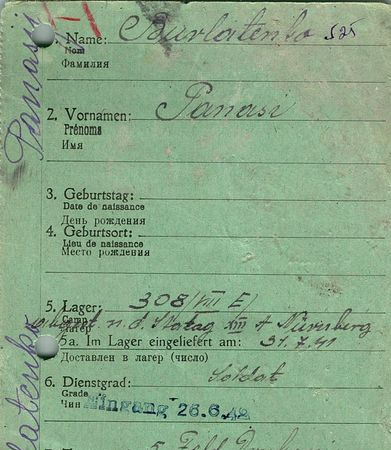 1. Name: Burlatenko
Nom
Фамилия
2. Vornamen: Panasi
Prénoms
Имя
3. Geburtstag:
Date de naissance
День рождения
4. Geburtsort:
Lieu de naissance
Место рождения
5. Lager: 308/VIII E/
Camp
Лагерь
n. d. Stalag XIII A Nürnberg
5a. Im Lager eingeliefert am: 31.7.41
Доставлен в лагер (число)
6. Dienstgrad: Soldat
Grade
Чин
Eingang 26.6.42
Panasi
latenko